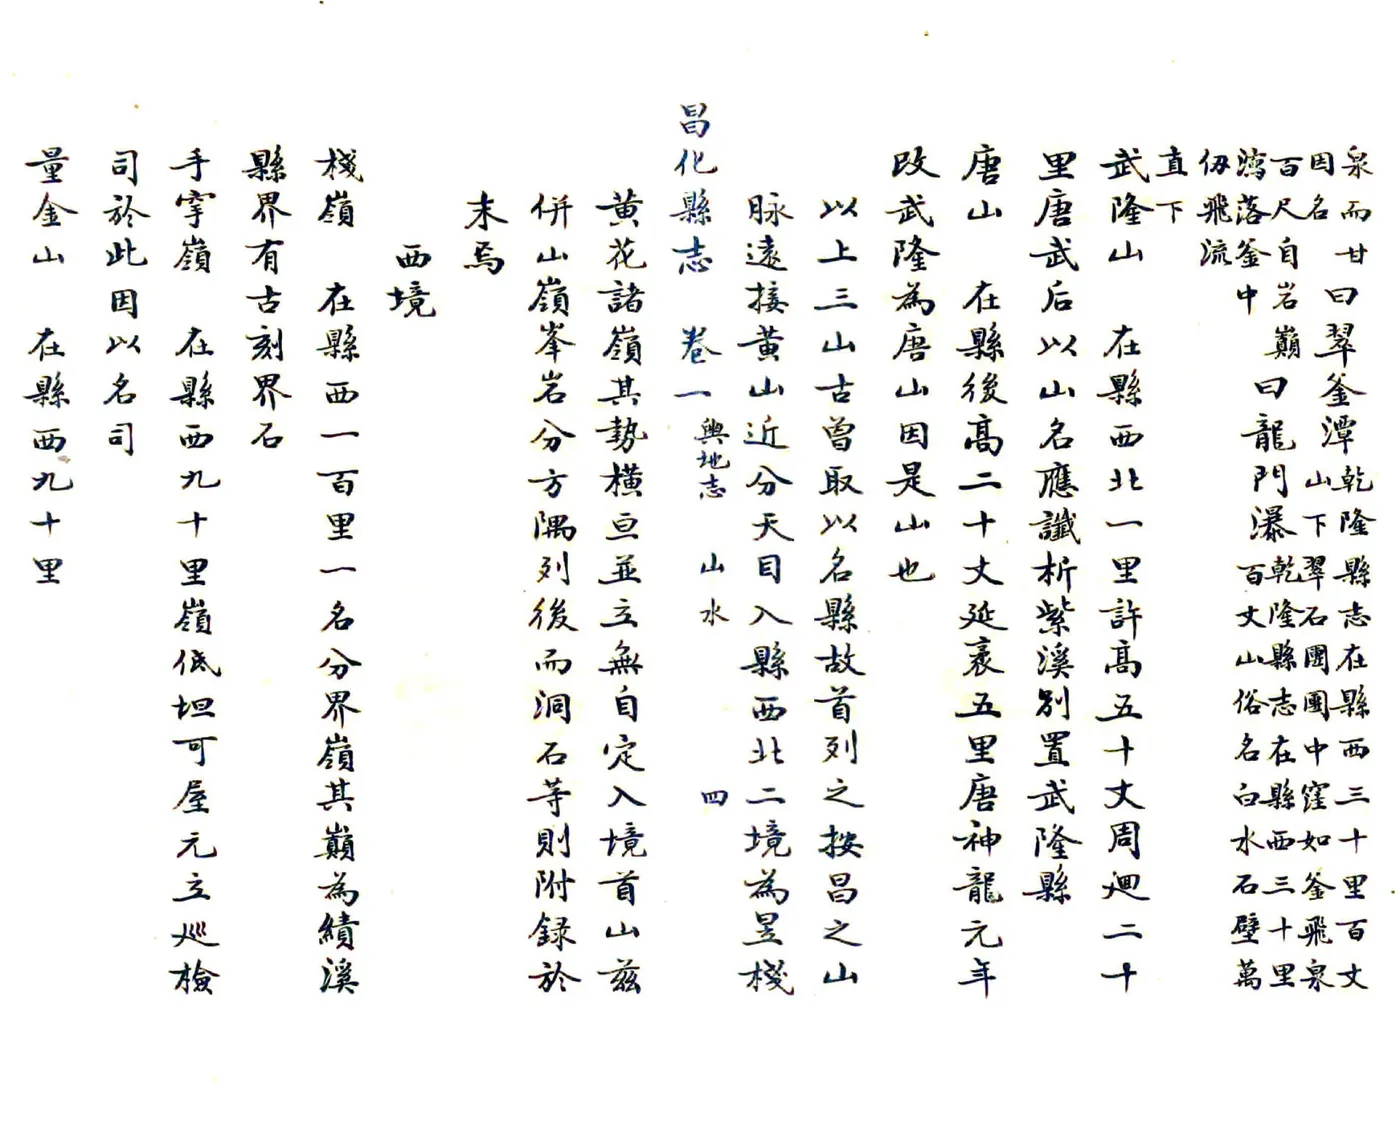 泉而甘
因名
曰翠釜潭
乾隆縣志在縣西三十里百丈
山下翠石團團中窪如釜飛泉
百尺自岩巔
瀉落釜中
曰龍門瀑
乾隆縣志在縣西三十里
百丈山俗名白水石壁萬
仞飛流
直下
武隆山　在縣西北一里許高五十丈周廻二十
里唐武后以山名應讖析紫溪別置武隆縣
唐山　在縣後高二十丈延袤五里唐神龍元年
改武隆為唐山因是山也
以上三山古曾取以名縣故首列之按昌之山
脉遠接黃山近分天目入縣西北二境為昱棧
昌化縣志　卷一　輿地志　山水　四
黃花諸嶺其勢橫亘並立無自定入境首山茲
併山嶺峯岩分方隅列後而洞石等則附録於
末焉
西境
棧嶺　在縣西一百里一名分界嶺其巔為績溪
縣界有古刻界石
手穿嶺　在縣西九十里嶺低坦可屋元立巡檢
司於此因以名司
量金山　在縣西九十里